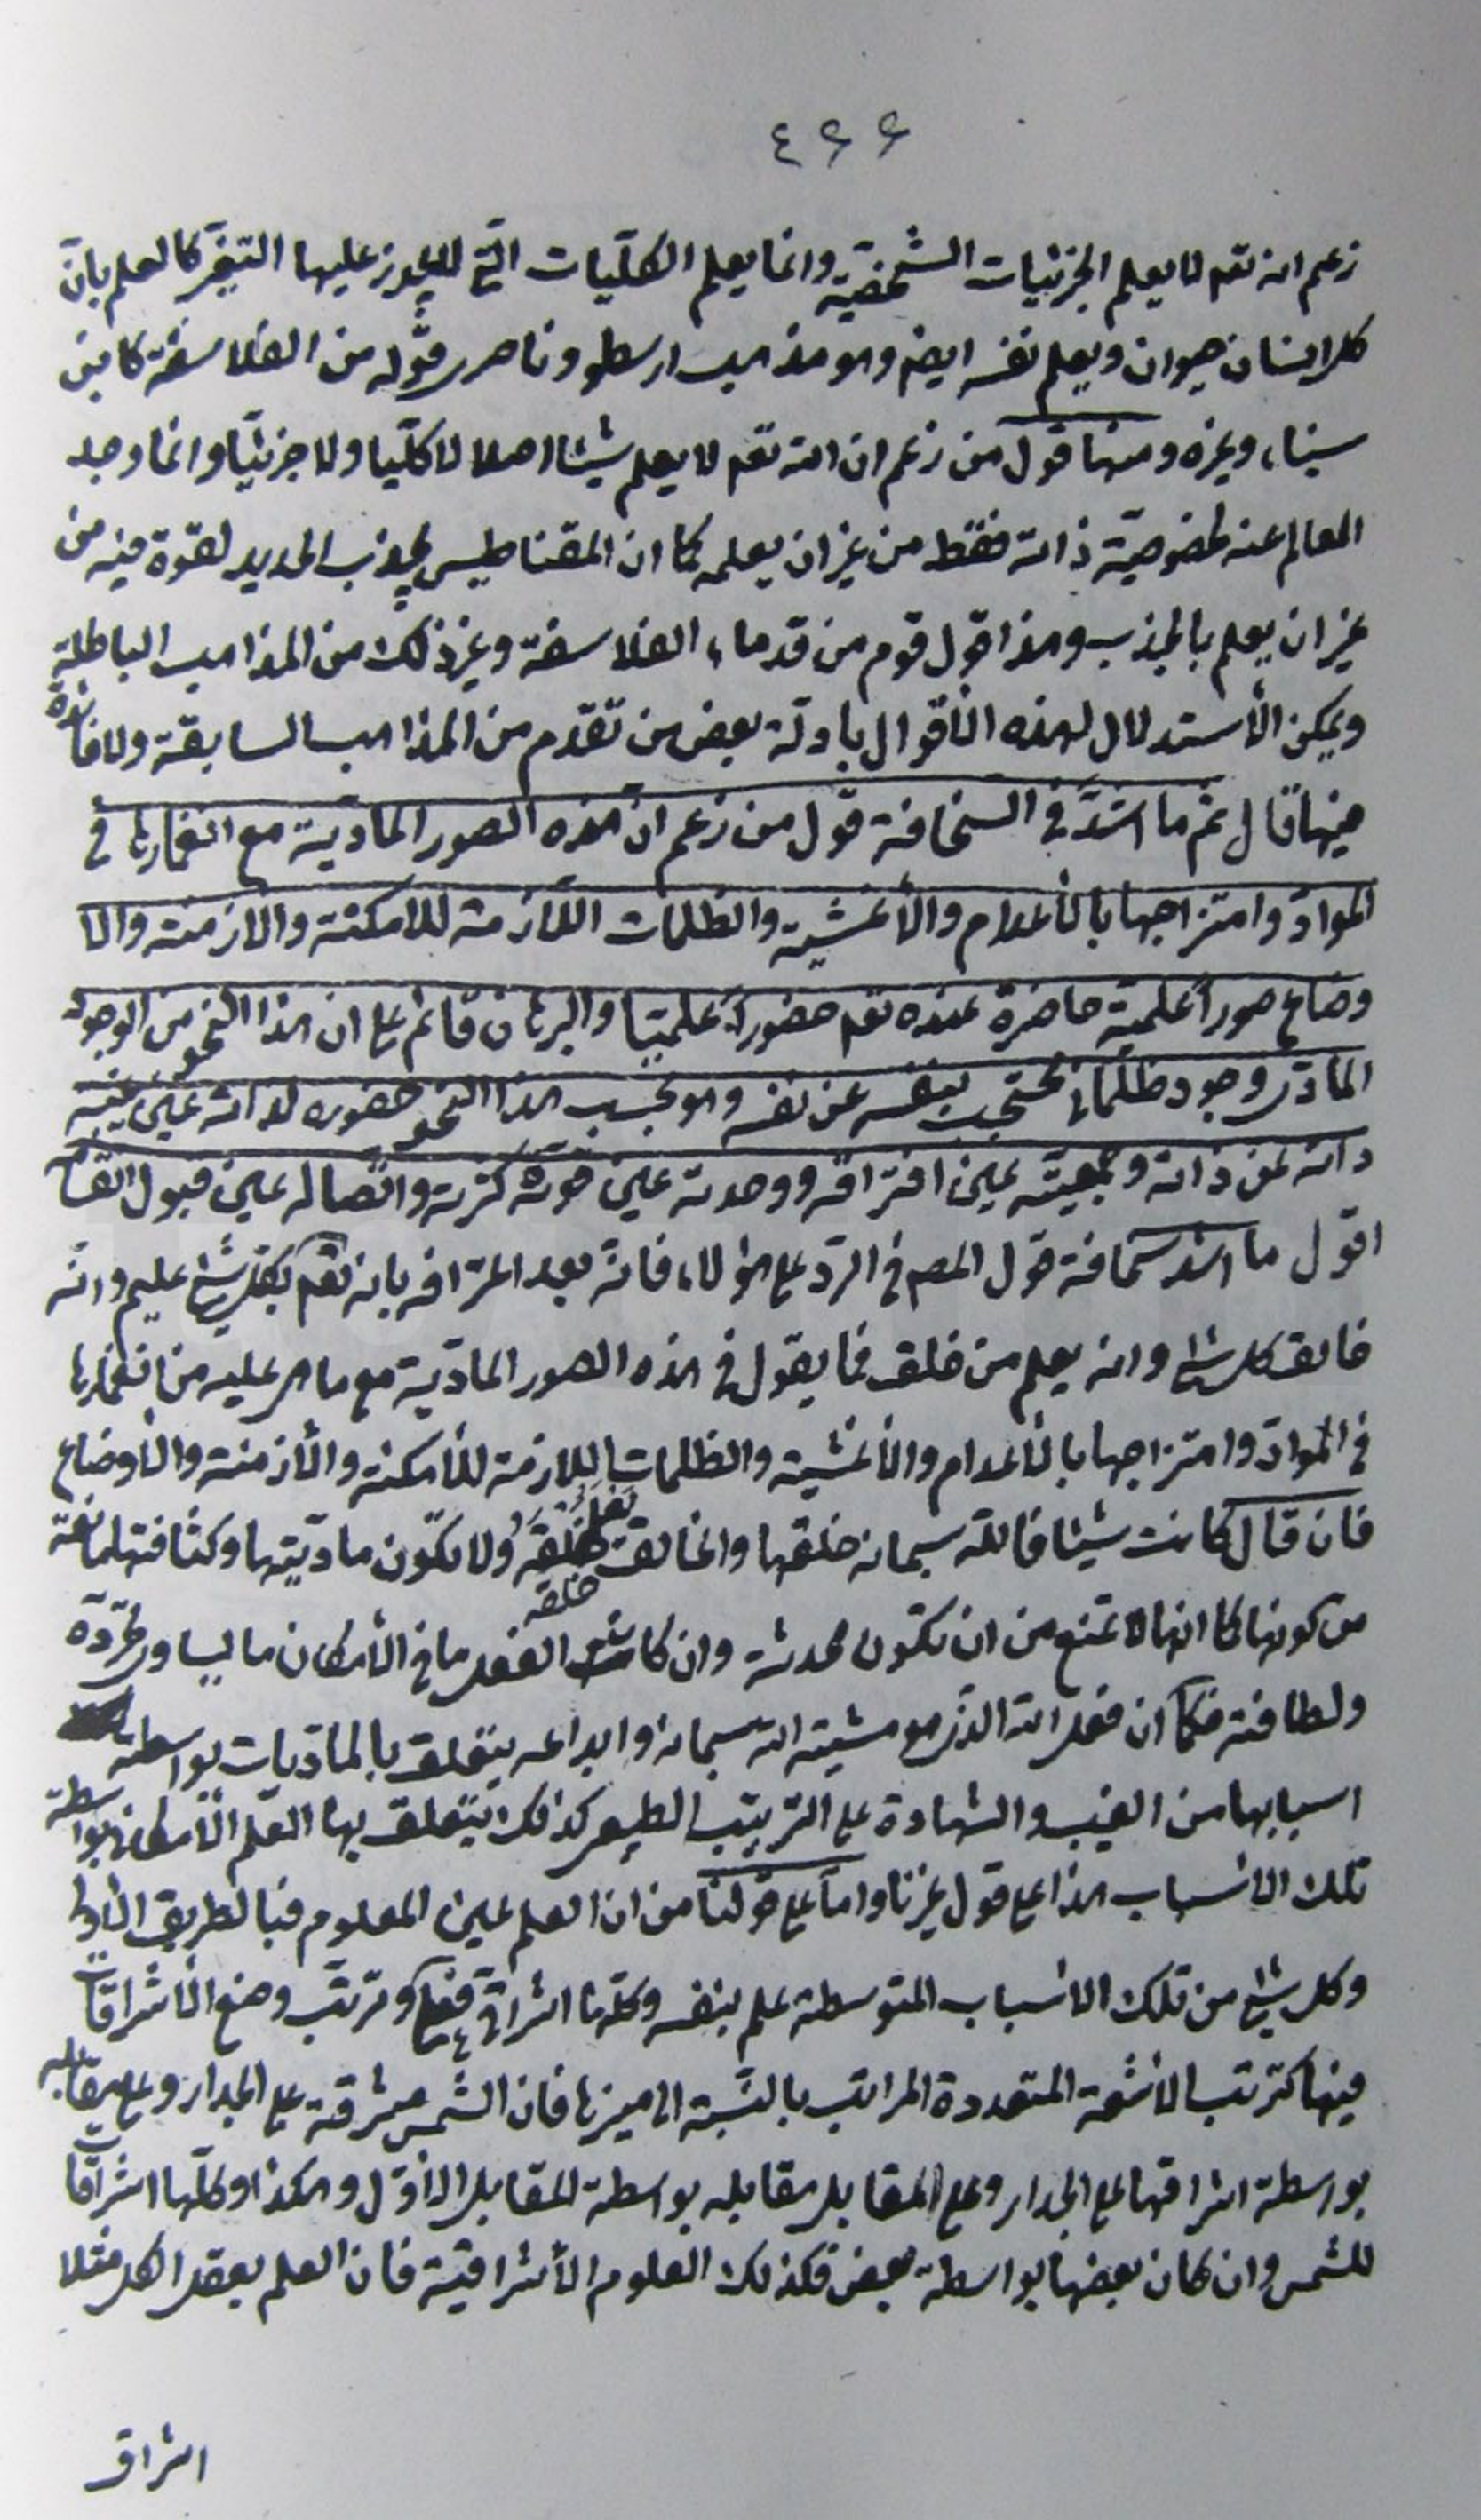 ٤٢٢
زعم انه تعم لا يعلم الجزئيات الشخصية وانما يعلم الكليات التي لا يجوز عليها التغير كالعلم بانّ
كل انسان حيوان ويعلم نفسه ايضم وهو مذهب ارسطو وناصرى قوله من الفلاسفة كابن
سيناء وغيره ومنها قول من زعم ان الله تعم لا يعلم شيئا اصلا لا كليّا ولا جزئيّا وانما وجد
العالم عنه لخصوصية ذاته فقط من غير ان يعلمه كما ان المقناطيس يجذب الحديد لقوة فيه من
غير ان يعلم بالجذب وهذا قول قوم من قدماء الفلاسفة وغير ذلك من المذاهب الباطلة
ويمكن الأستدلال لهذه الأقوال بادلّة بعض من تقدّم من المذاهب السابقة ولا فائدة
فيها قال ثم ما اشدّ في السخافة قول من زعم ان هذه الصور المادية مع انغمارها في
الموادّ وامتزاجها بالأعدام والأغشية والظلمات اللازمة للامكنة والازمنة والا
وضاع صوراً علمية حاضرة عنده تعم حضوراً علميّا والبرهان قائم على ان هذا النحو من الوجود
المادّى وجود ظلمانى محتجب بنفسه عن نفسه وهو بحسب هذا النحو حضوره لذاته عين غيبة
ذاته عن ذاته وجمعيته عين افتراقه ووحدته عين قوة كثرته واتصاله عين قبول انقسا
اقول ما اشد سخافة قول المصم في الردّ على هؤلاء فانّه بعد اعترافه بانه تعم بكل شئ عليم وانّه
خالق كل شئ وانه يعلم من خلق فما يقول في هذه الصور المادّية مع ما هى عليه من انغمارها
في الموادّ وامتزاجها بالأعدام والأغشية والظلمات اللازمة للأمكنة والأزمنة والأوضاع
فان قال كانت شيئا فالله سبحانه خلقها والخالق يعلم خلقه ولا تكون مادّيتها وكثافتها مانعة
خلقه
من كونها كما انها لا تمنع من ان تكون محدثة وان كانت الفعل ما في الأمكان ما يساوى تجرّده
ولطافته فكما ان فعل الله الذى هو مشيته الله سبحانه وابداعه يتعلق بالمادّيات بواسطة
اسبابها من الغيب والشهادة على الترتيب الطبيعى كذلك يتعلق بها العلم الأمكانى بواسطة
تلك الاسباب هذا على قول غيرنا وامّا على قولنا من ان العلم عين المعلوم فبالطريق الاولى
وكل شئ من تلك الاسباب المتوسطة علم بنفسه وكلها اشراقى فعلى وترتّب وضع الأشراقات
فيها كترتب الأشعّة المتعددة المراتب بالنسبة الى منيرها فان الشمس مشرقة على الجدار وعلى مقابله
بواسطة اشراقها على الجدار وعلى المقابل مقابله بواسطة المقابل الاوّل وهكذا وكلّها اشراقات
للشمس وان كان بعضها بواسطة بعض فكذلك العلوم الأشراقية فان العلم بعقل الكل مثلا
اشراق